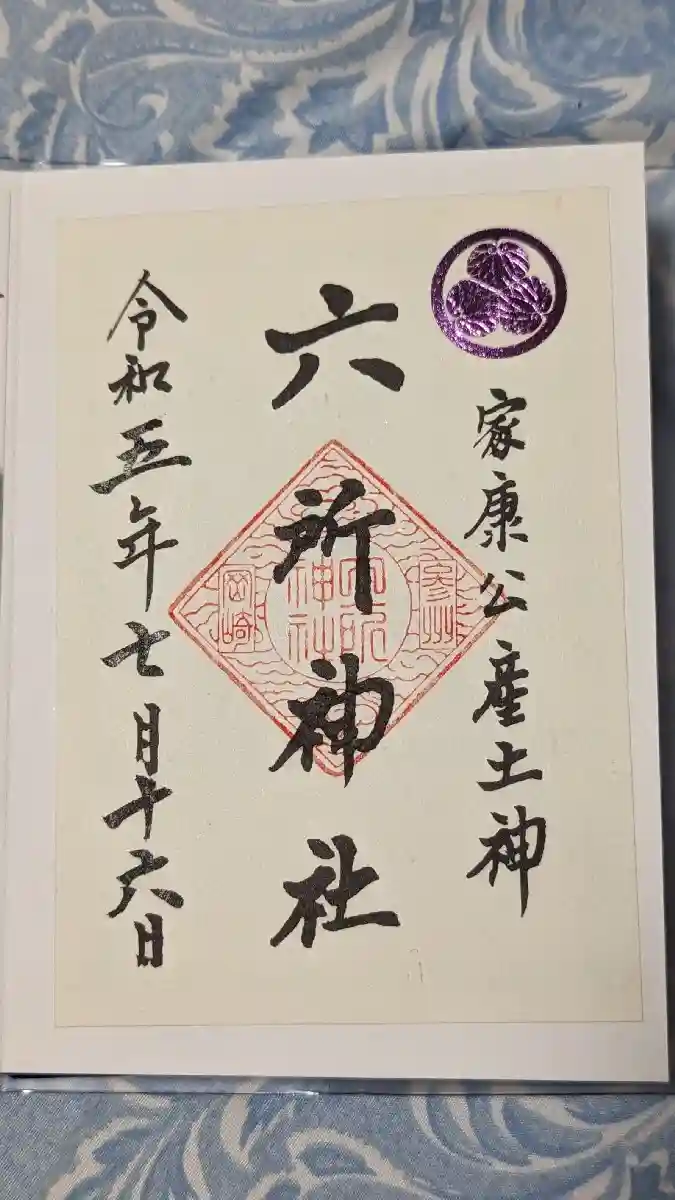 家康公産土神
六所神社
参州
六所
神社
岡崎
令和五年七月十六日